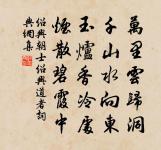 萬里雲歸洞
千山水向東
玉爐香冷處
煙散碧霞中
紹興朝士紹興道者詞
典網集